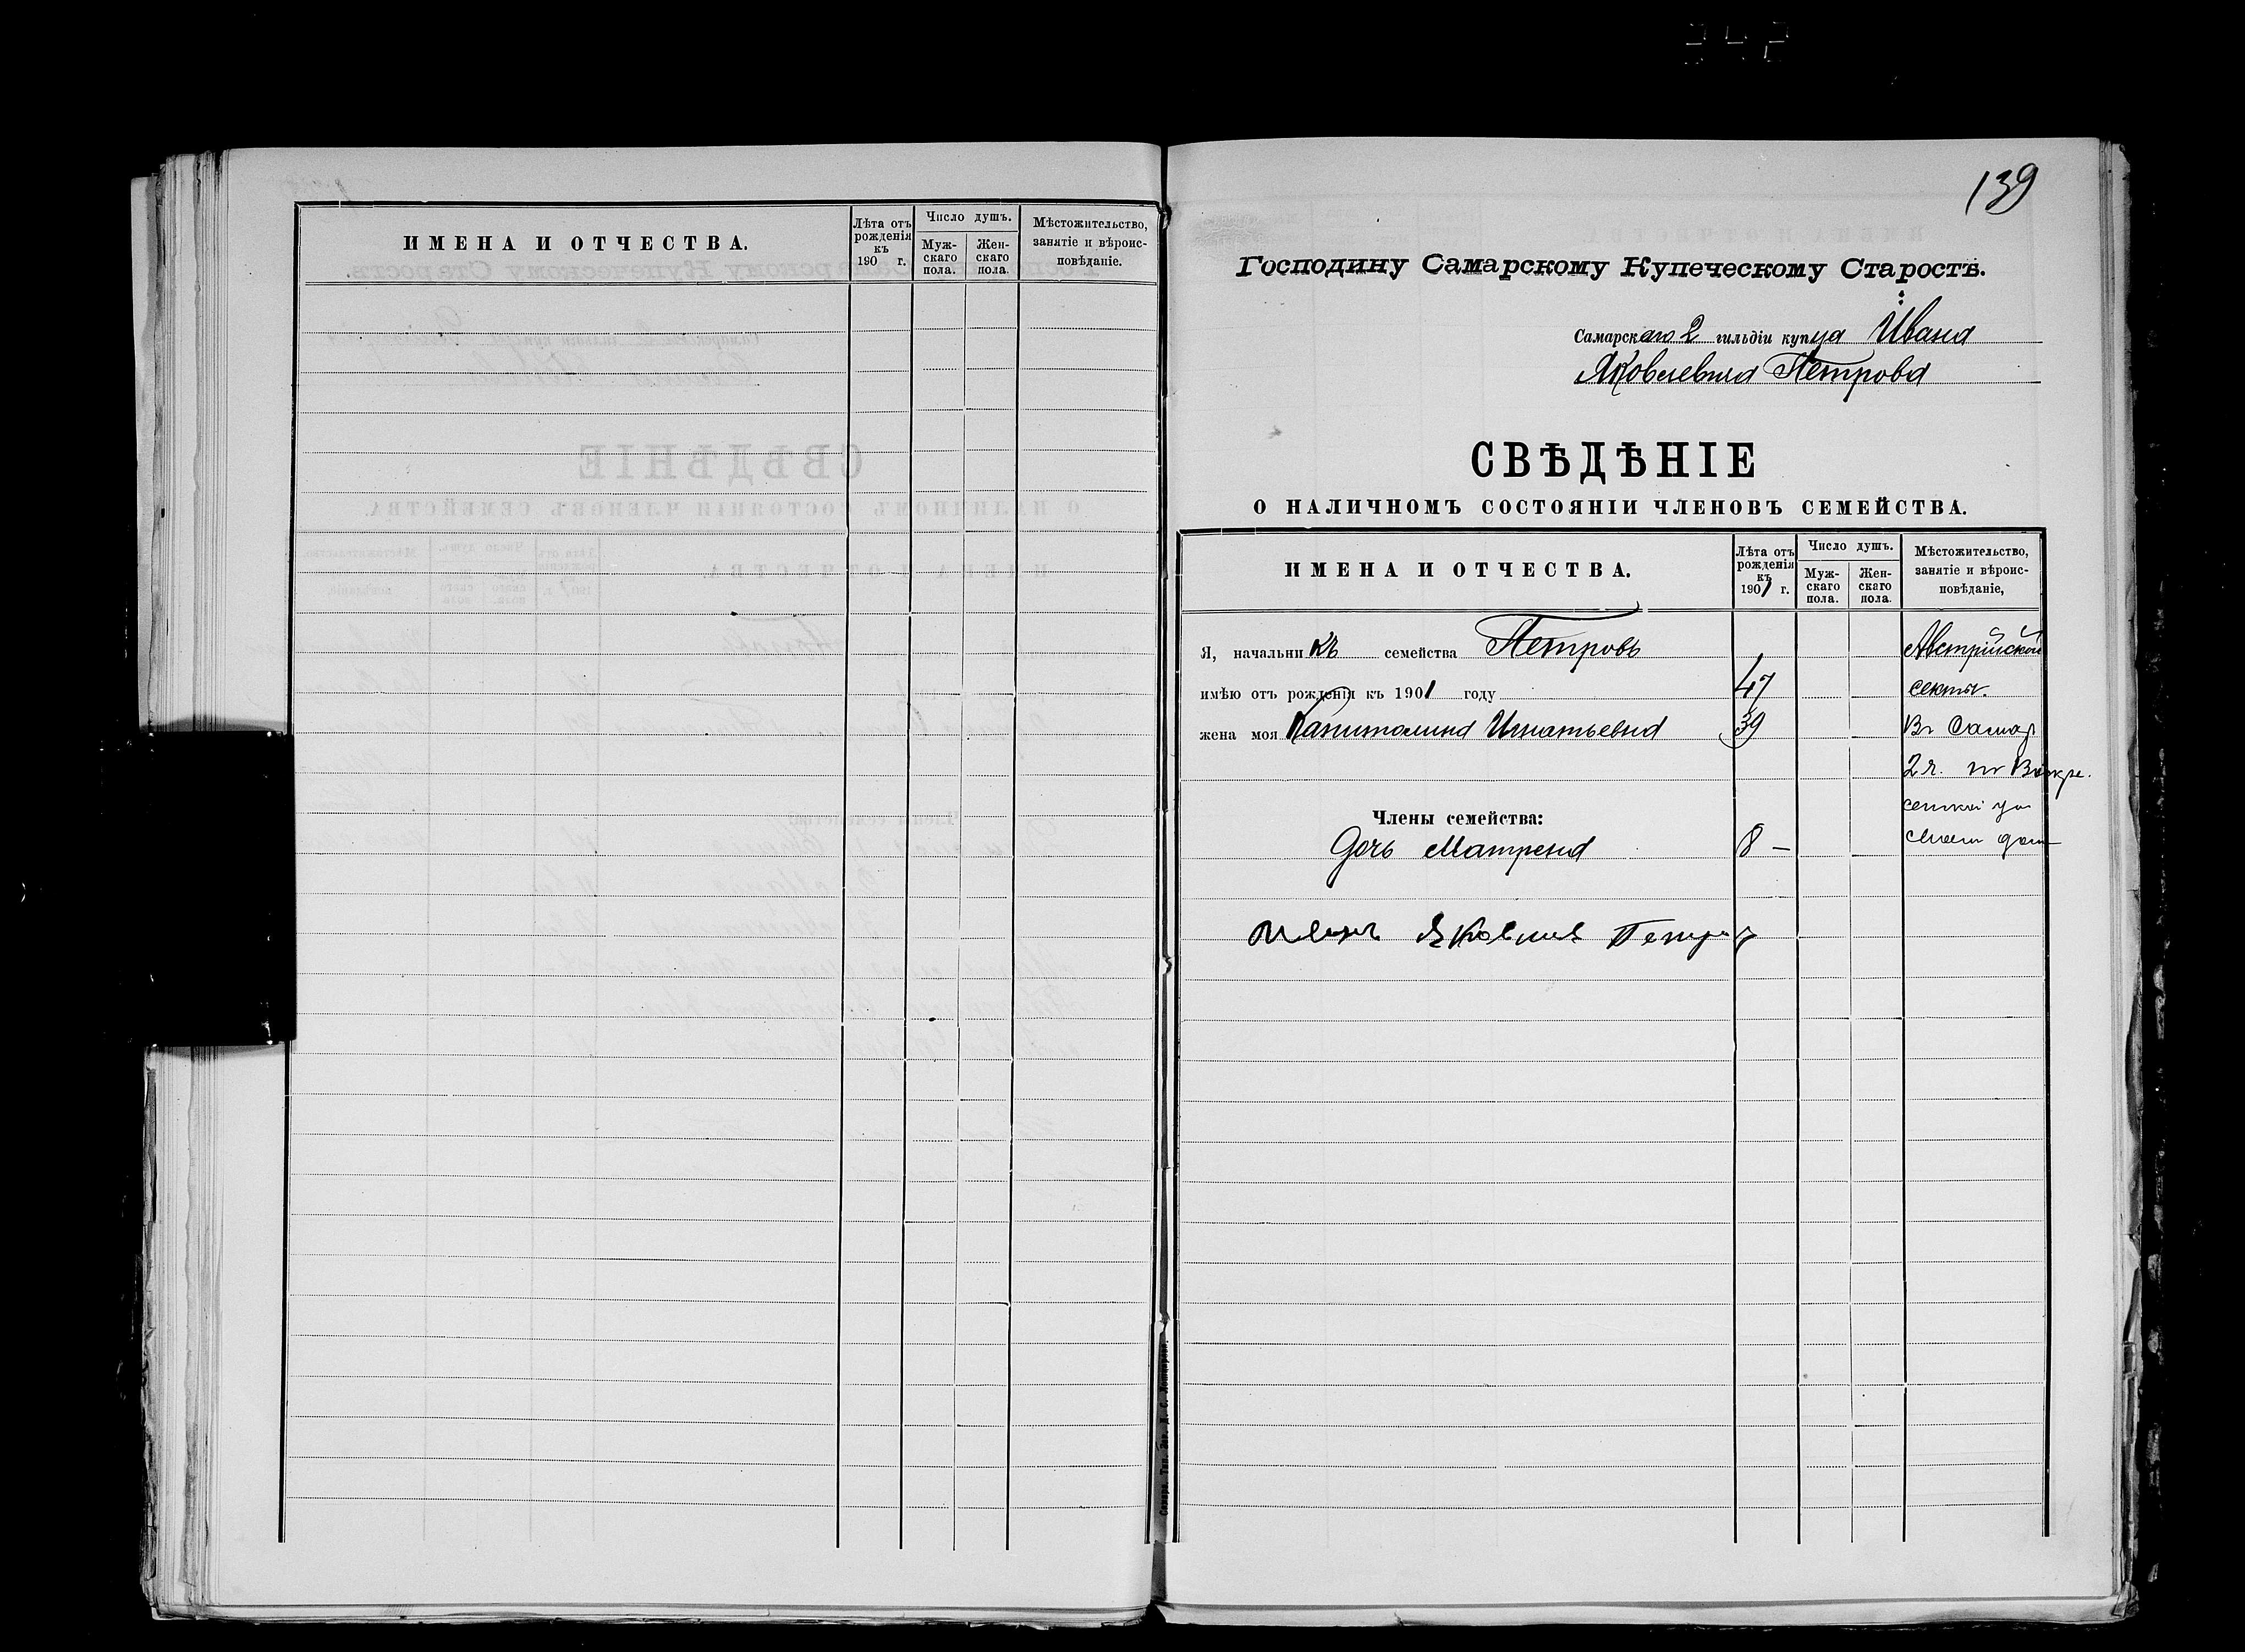 ИМЕНА И ОТЧЕСТВА.
Лѣта отъ рожденія къ 190 г.
Число душъ.
Муж-скаго пола.
Жен-скаго пола.
Мѣстожительство, занятіе и вѣроис-повѣданіе.
139
Господину Самарскому Купеческому Старостѣ.
Самарскаго 2 гильдіи купца Ивана
Яковлевича Петрова
СВѢДѢНІЕ
О НАЛИЧНОМЪ СОСТОЯНІИ ЧЛЕНОВЪ СЕМЕЙСТВА.
ИМЕНА И ОТЧЕСТВА.
Лѣта отъ рожденія къ 1901 г.
Число душъ.
Муж-скаго пола.
Жен-скаго пола.
Мѣстожительство, занятіе и вѣроис-повѣданіе,
Я, начальникъ семейства Петровъ Австрійской
имѣю отъ рожденія къ 1901 году 47 секты.
жена моя Капиталина Игнатьевна 39 Въ Самар
2 ч. по Воскре.
сенской ул
Члены семейства:
своем дом
Дочь Матрена 8 —
Иванъ Яковлев Петров
Самара. Тип.